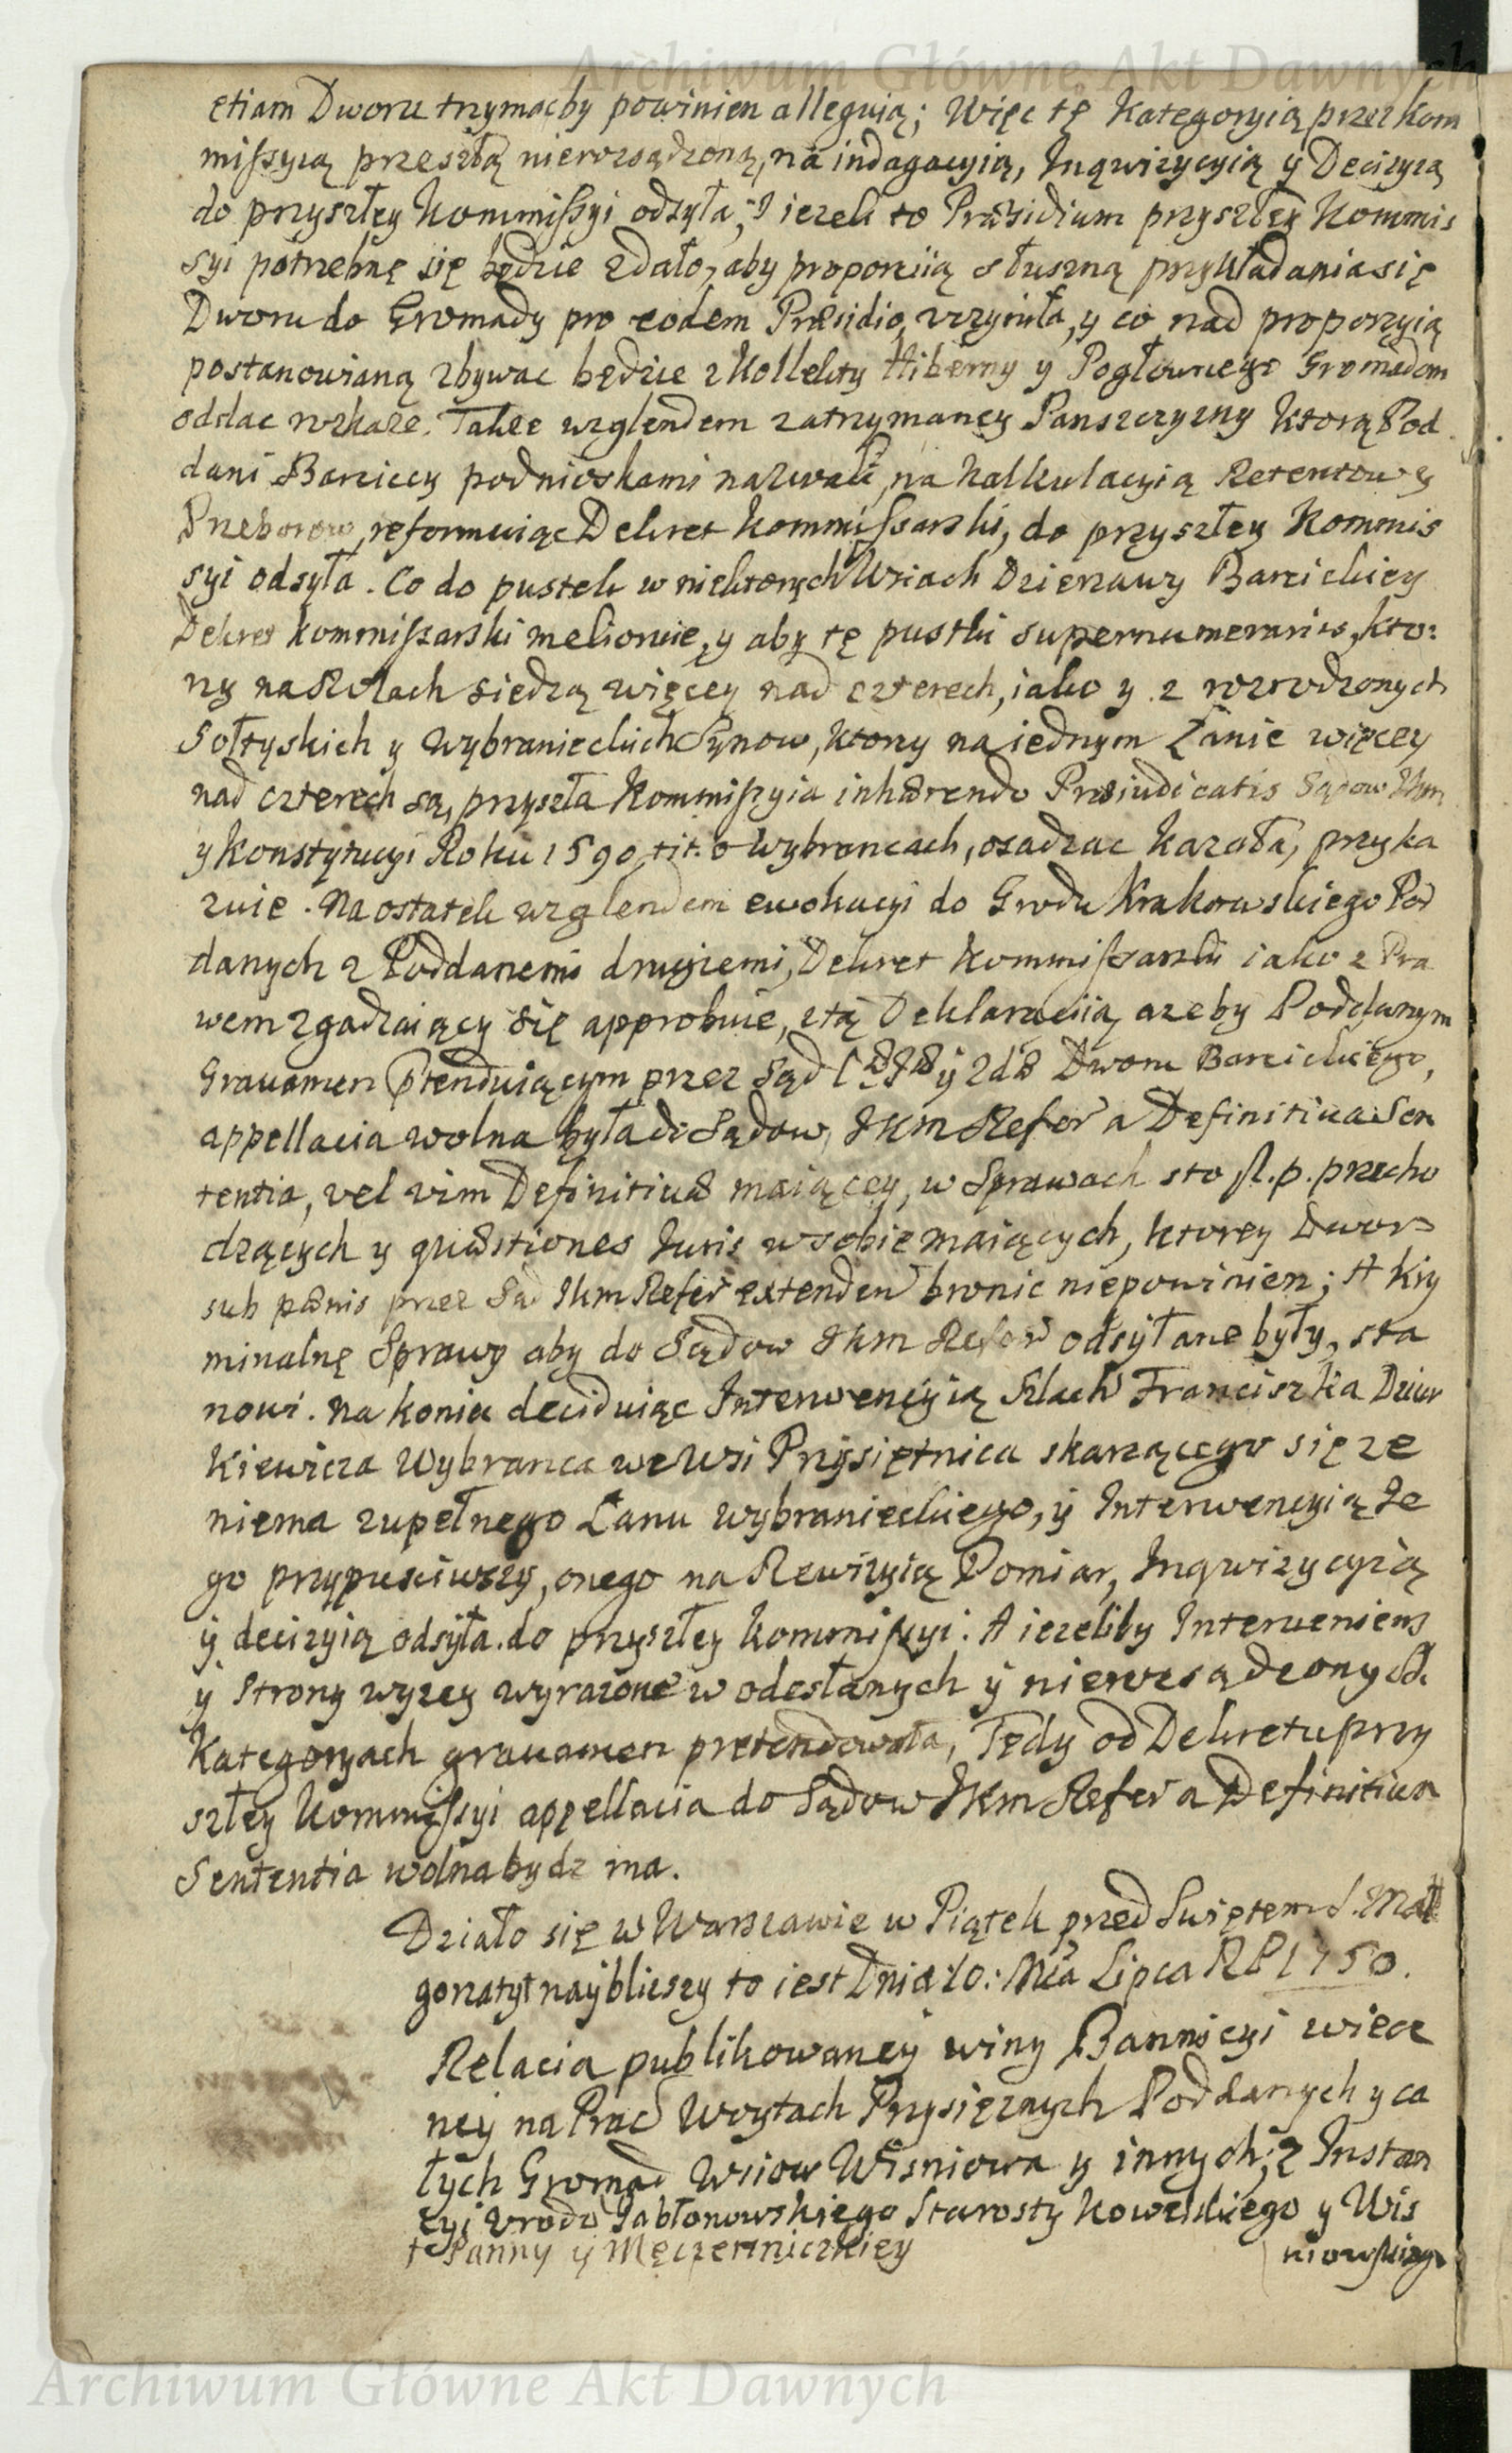 Archiwum Główne Akt Dawnych
etiam Dworu trzymacby powinien alleguią; Więc tę Kategoryią przez Kom
missyią przeszłą nierozsądzoną, na indagacyią, Inqwizycyią y Decizyią
do przyszłey Kommissyi odsyła; I iezeli to Præsidium przyszłey Kommis
syi potrzebnę się będzie zdało, aby proporciią słuszną przykładania się
Dworu do Gromady pro eodem Præsidio uczyniła, y co nad proporcyią
postanowianą zbywac będzie z Kollekty Hiberny y Pogłownego Gromadom
oddac rozkaze. Takze względem zatrzymaney Panszczyzny ktorą Pod
dani Barciccy podnioskami nazwali, na Kalkulacyią Retentow y
Przeborow, reformuiąc Dekret Kommissarski, do przyszłey Kommis
syi odsyła. Co do pustek w niektorych Wsiach Dzierzawy Barcickiey
Dekret Kommissarski melioruie, y aby tę pustki supernumerariis, kto:
rzy na Rolach siedzą więcey nad czterech, iako y z rozrodzonych
Sołtyskich y Wybranieckich Synow, ktorzy na iednym Łanie więcey
nad czterech są, przyszła Kommissyia inhærendo Præiudicatis Sądow Jkm
y Konstytucyi Roku 1590, tit. o Wybrancach, osadzac kazała, przyka
zuie. Na ostatek względem ewokacyi do Grodu Krakowskiego Pod
danych z Poddanemi drugiemi, Dekret Kommissarski iako z Pra
wem zgadzaiący się approbuie, z tą Deklaraciią azeby Poddanym
Gravamen ptenduiącym przez Sąd y Dworu Barcickiego,
appellacia wolna była do Sądow Jkm Refer a Definitiva Sen
tentia, vel vim Definitivæ maiącey, w Sprawach sto fl. p. przecho
dzących y quæstiones Iuris w sobie maiących, ktorey Dwor
sub pænis przez Sąd Jkm Refer extenden bronic niepowinien; A Kry
minalnę Sprawy aby do Sądow Jkm Refer odsyłane były, sta
nowi. Na koniec deciduiąc Interwencyią Szlach Franciszka Dziur
Kiewicza Wybranca we Wsi Przysiętnica skarzącego się ze
niema zupełnego Łanu wybranieckiego, y Interwencyią Je
go przypusciwszy, onego na Rewizyią Pomiar, Inqwizycyią
y decizyią odsyła do przyszłey Kommissyi. A iezeliby Interveniens
y Strony wyzey wyrazone w odesłanych y nierozsądzonych
Kategoryach gravamen pretendowała, Tedy od Dekretu przy
szłey Kommissyi appellacia do Sądow Jkm Refer a Definitiva
Sententia wolna bydz ma.
Działo się w Warszawie w Piątek przed Swiętem S. Mał
gorzaty † naybliszy to iest Dnia: 10: Mca Lipca RP 1750.
Relacia publikowaney winy Bannicyi wiecz
ney na Prac Woytach Przysięznych Poddanych y ca
łych Gromad Wsiow Wisniowa y innych; z Instan
cyi Urodo Jabłonowskiego Starosty Kowelskiego y Wis
† Panny y Męczenniczkiey
niowskieg
Archiwum Główne Akt Dawnych